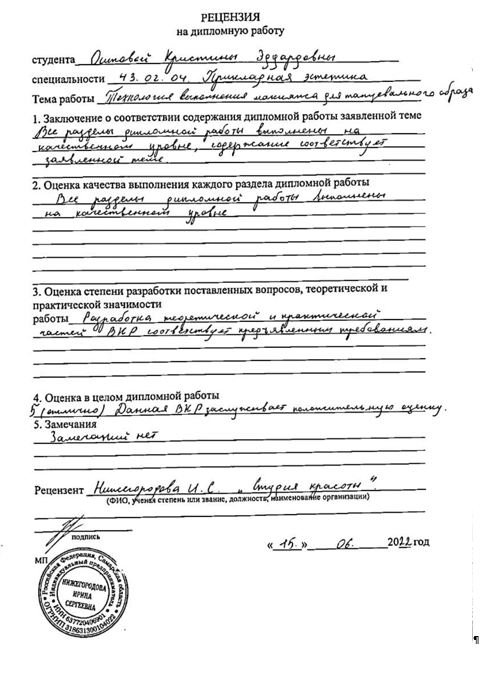 РЕЦЕНЗИЯ
на дипломную работу
студента Осиповой Кристины Эдуардовны
специальности 43.02.04. Прикладная эстетика
Тема работы Технология выполнения макияжа для танцевального образа
1. Заключение о соответствии содержания дипломной работы заявленной теме
Все разделы дипломной работы выполнены на
качественном уровне, содержание соответствует
заявленной теме.
2. Оценка качества выполнения каждого раздела дипломной работы
Все разделы дипломной работы выполнены
на качественном уровне
3. Оценка степени разработки поставленных вопросов, теоретической и
практической значимости
работы Разработка теоретической и практической
частей ВКР соответствует предъявленным требованиям.
4. Оценка в целом дипломной работы
5 (отлично) Данная ВКР заслуживает положительную оценку.
5. Замечания
Замечаний нет
Рецензент Нижегородова И.С. "Студия красоты".
(ФИО, ученая степень или звание, должность, наименование организации)
подпись
« 15. » 06. 2022 год
МП
Российская Федерация, Самарская область
Индивидуальный предприниматель
НИЖЕГОРОДОВА
ИРИНА
СЕРГЕЕВНА
ИНН 637720406901
ОГРНИП 318631300104022
¶